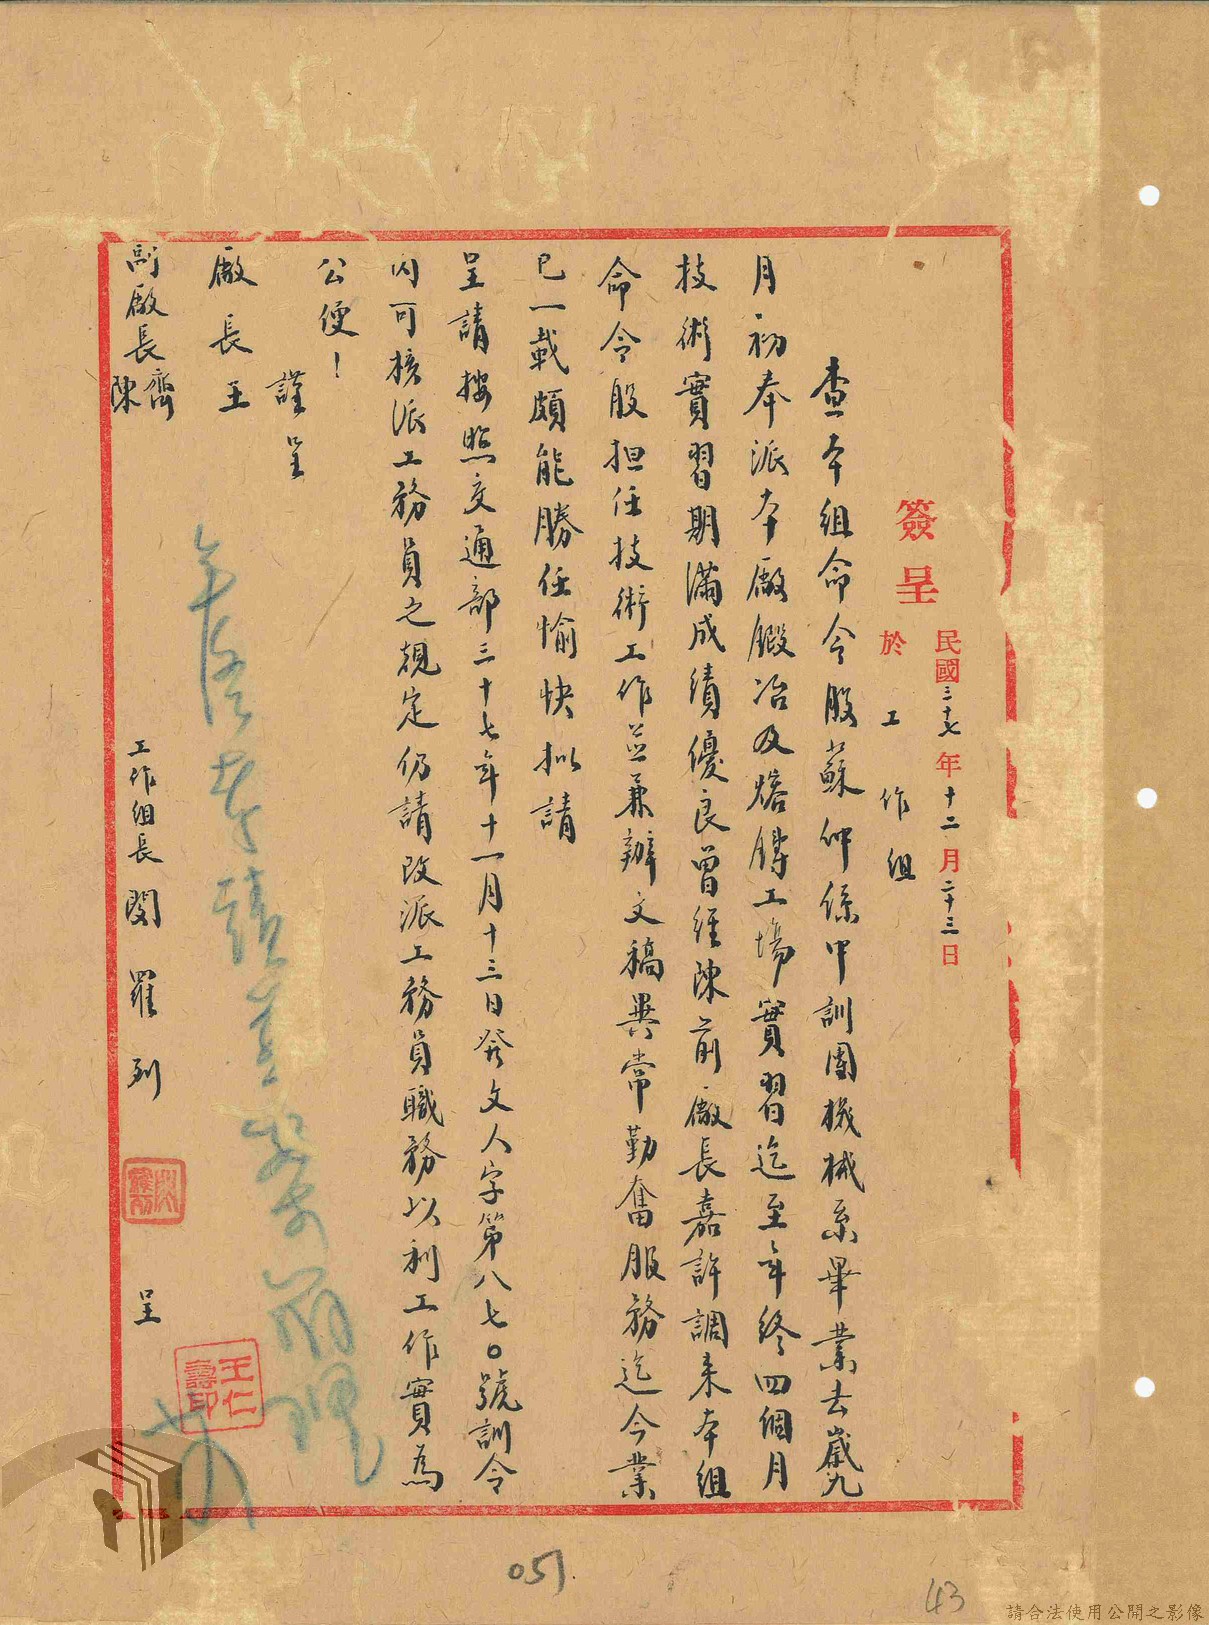 簽呈 民國三十七年十二月二十三日
於 工作組
查本組命令股蘇仲係中訓團機械系畢業去歲九
月初奉派本廠鍛冶及熔鑄工場實習迄至年終四個月
技術實習期滿成績優良曾經陳前廠長嘉許調來本組
命令股担任技術工作並兼辦文稿異常勤奮服務迄今業
已一載頗能勝任愉快拟請
呈請按照交通部三十七年十一月十三日發文人字第八七〇號訓令
內可核派工務員之規定仍請改派工務員職務以利工作實為
公便！
謹呈
廠長王
副廠長齊
陳
工作組長閔羅列 呈
王仁壽印
051
43
請合法使用公開之影像